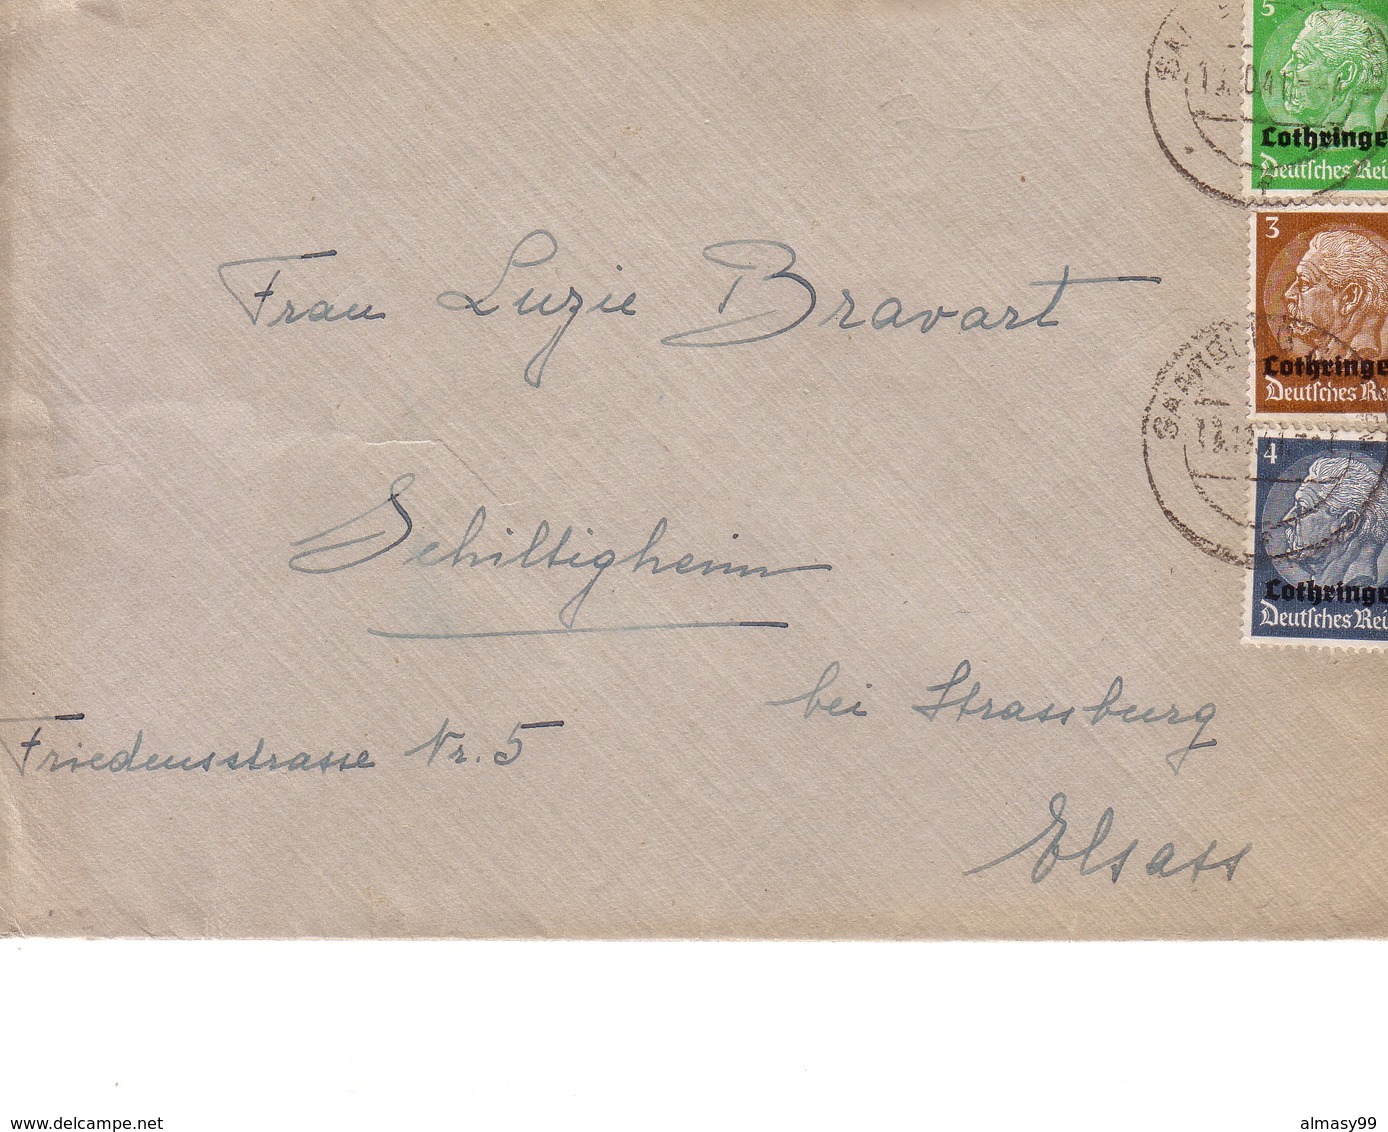 5
Lothringe
Deutsches Rei
3
Lothringe
Deutsches Re
4
Lothringe
Deutsches Rei
Frau Luzie Bravart
Schiltigheim
bei Strassburg
Friedensstrasse Nr. 5
Elsass
www.delcampe.net
almasy99